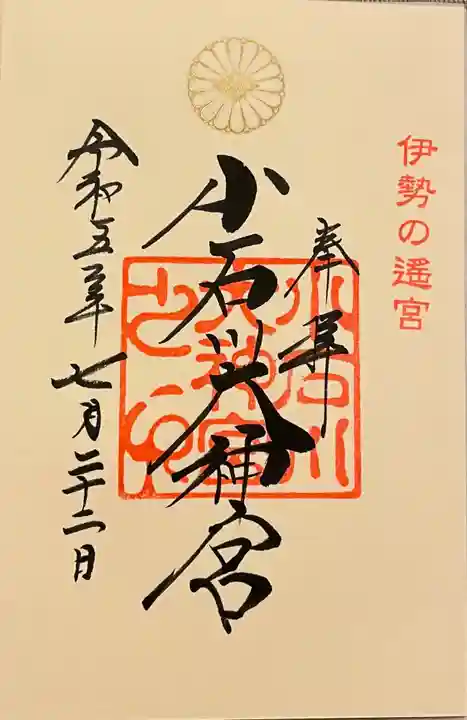 伊勢の遥宮
奉拝
小石川大神宮
令和五年七月二十二日
小石川
大神宮
之印